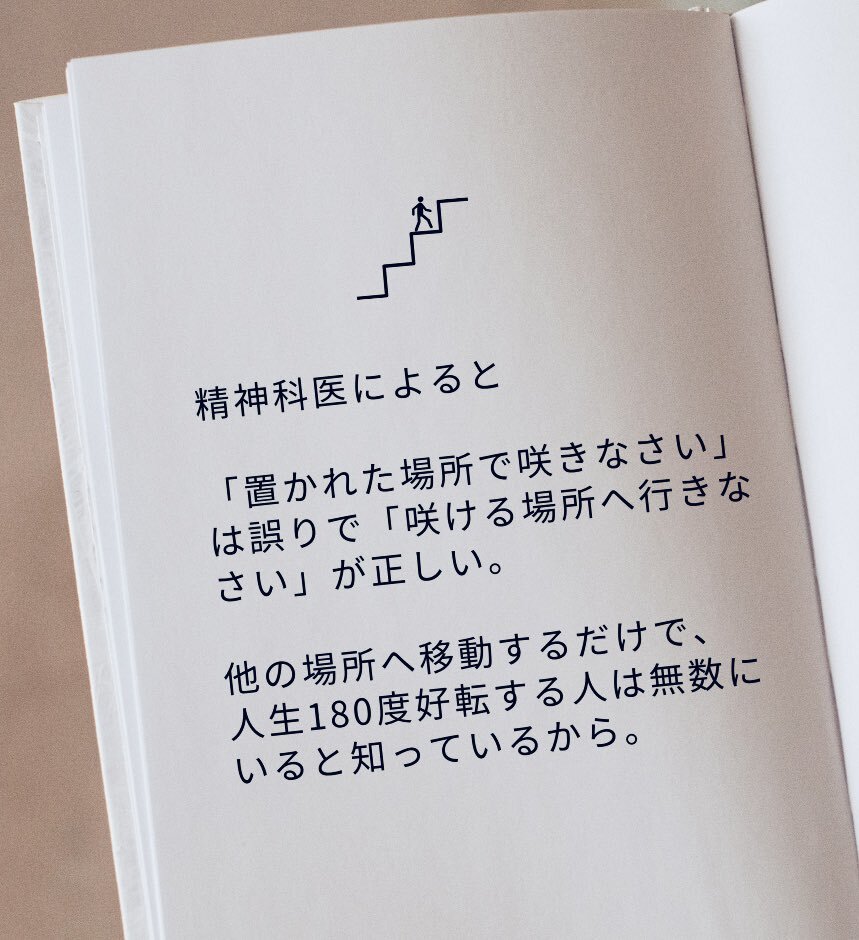 精神科医によると
「置かれた場所で咲きなさい」
は誤りで「咲ける場所へ行きな
さい」が正しい。
他の場所へ移動するだけで、
人生180度好転する人は無数に
いると知っているから。